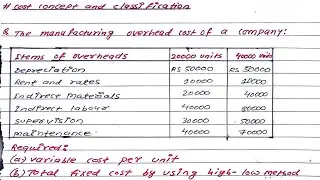 # cost concept and classification
Q. The manufacturing overhead cost of a company:
Items of overheads 20000 units 40000 units
Depreciation RS 50000 RS 50000
Rent and rates 20000 20000
Indirect materials 20000 40000
Indirect labour 40000 80000
Supervision 30000 50000
maintenance 40000 70000
Required:
(a) variable cost per unit
(b) Total fixed cost by using high-low method